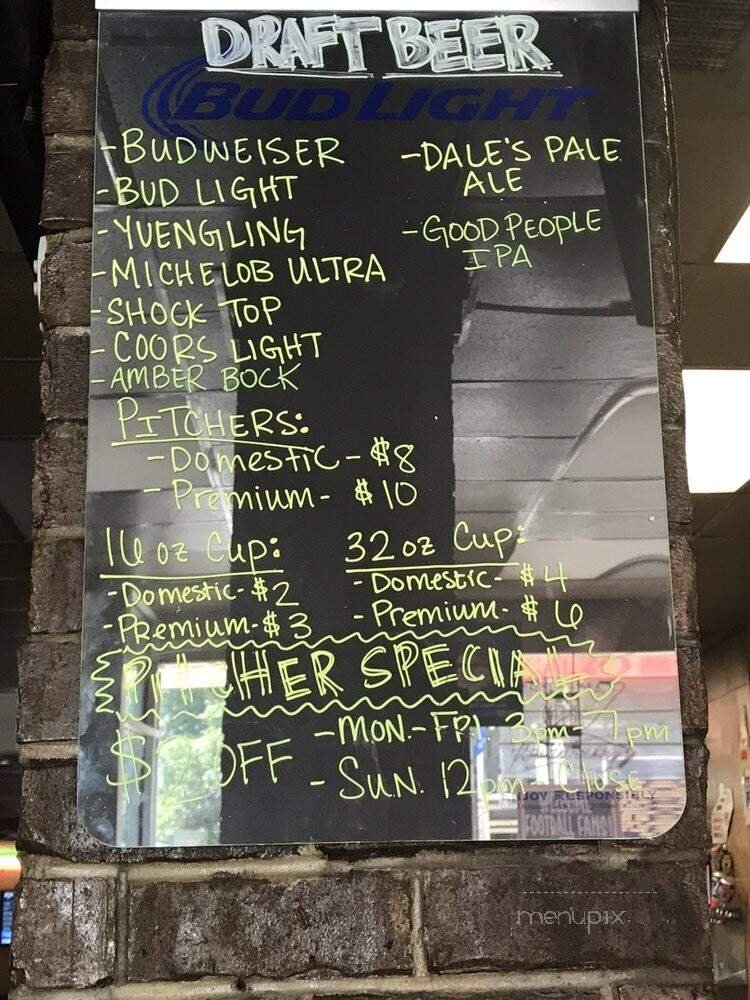 DRAFT BEER
BUD LIGHT
-BUDWEISER
-BUD LIGHT
-YUENGLING
-MICHELOB ULTRA
-SHOCK TOP
-COORS LIGHT
-AMBER BOCK
-DALE'S PALE
ALE
-GOOD PEOPLE
IPA
PITCHERS:
-Domestic-$8
-Premium-$10
16 oz Cup:
-Domestic-$2
-Premium-$3
32 oz Cup:
-Domestic-$4
-Premium-$6
PITCHER SPECIAL
$2 OFF
-MON.-FRI 3pm-7pm
-SUN. 12pm-Close
RESPONSIBLY
FOOTBALL FANS!
menupix